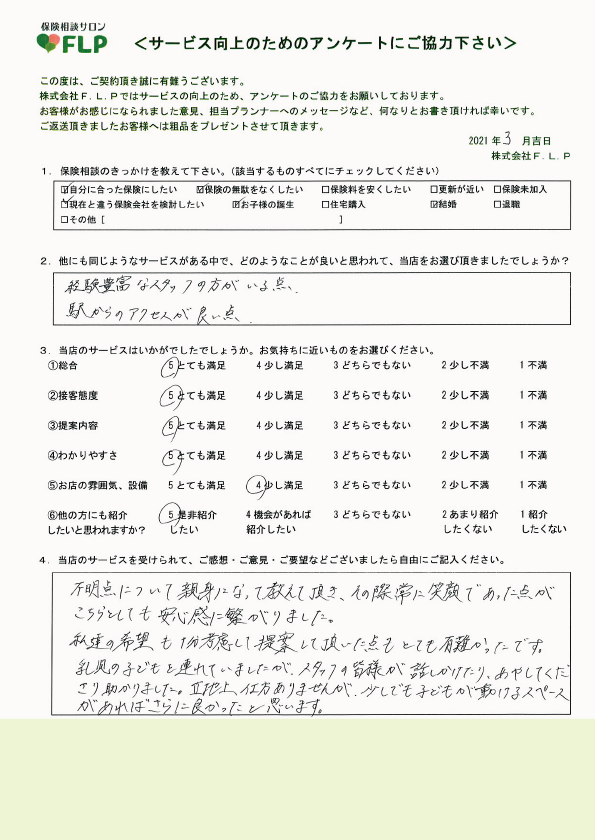 保険相談サロン
FLP
＜サービス向上のためのアンケートにご協力下さい＞
この度は、ご契約頂き誠に有難うございます。
株式会社F．L．Pではサービスの向上のため、アンケートのご協力をお願いしております。
お客様がお感じになられました意見、担当プランナーへのメッセージなど、何なりとお書き頂ければ幸いです。
ご返送頂きましたお客様へは粗品をプレゼントさせて頂きます。
2021 年 3 月吉日
株式会社F．L．P
1．保険相談のきっかけを教えて下さい。（該当するものすべてにチェックしてください）
☑自分に合った保険にしたい ☑保険の無駄をなくしたい □保険料を安くしたい □更新が近い □保険未加入
☑現在と違う保険会社を検討したい ☑お子様の誕生 □住宅購入 ☑結婚 □退職
□その他［ ］
2．他にも同じようなサービスがある中で、どのようなことが良いと思われて、当店をお選び頂きましたでしょうか？
経験豊富なスタッフの方がいる点、
駅からのアクセスが良い点、
3．当店のサービスはいかがでしたでしょうか。お気持ちに近いものをお選びください。
①総合 5 とても満足 4 少し満足 3 どちらでもない 2 少し不満 1 不満
②接客態度 5 とても満足 4 少し満足 3 どちらでもない 2 少し不満 1 不満
③提案内容 5 とても満足 4 少し満足 3 どちらでもない 2 少し不満 1 不満
④わかりやすさ 5 とても満足 4 少し満足 3 どちらでもない 2 少し不満 1 不満
⑤お店の雰囲気、設備 5 とても満足 4 少し満足 3 どちらでもない 2 少し不満 1 不満
⑥他の方にも紹介 5 是非紹介 4 機会があれば 3 どちらでもない 2 あまり紹介 1 紹介
したいと思われますか？ したい 紹介したい したくない したくない
4．当店のサービスを受けられて、ご感想・ご意見・ご要望などございましたら自由にご記入ください。
不明点について親身になって教えて頂き、その際常に笑顔であった点が
こちらとしても安心感に繋がりました。
私達の希望も十分考慮して提案して頂いた点もとても有難かったです。
乳児の子どもを連れていましたが、スタッフの皆様が話しかけたり、あやしてくだ
さり助かりました。立地上、仕方ありませんが、少しでも子どもが動けるスペース
があればさらに良かったと思います。